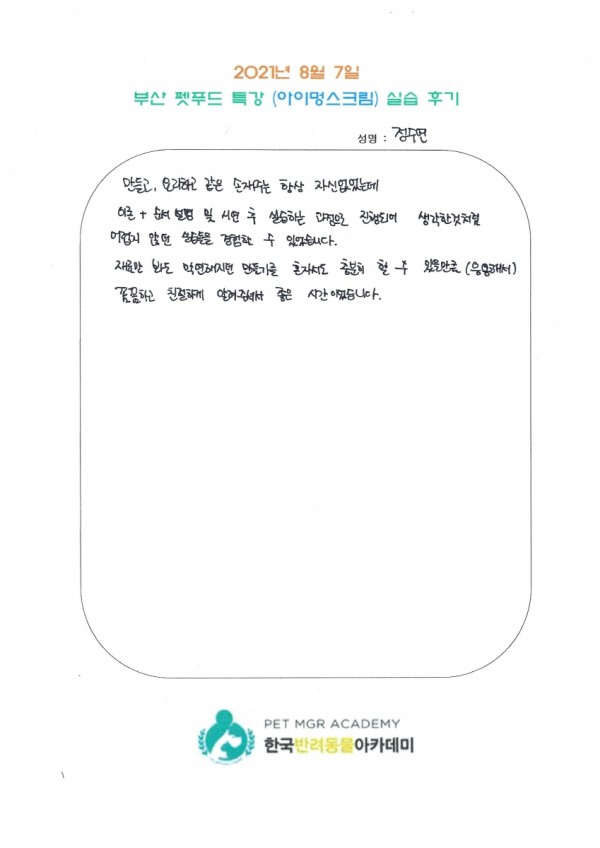 2021년 8월 7일
부산 펫푸드 특강 (아이멍스크림) 실습 후기
성명 : 정수연
만들고, 요리하고 같은 손재주는 항상 자신없었는데
이론 + 순서 설명 및 시연 후 실습하는 과정으로 진행되어 생각한것처럼
어렵지 않던 실습들을 경험할 수 있었습니다.
재료만 봐도 막연해지던 만들기를 혼자서도 충분히 할 수 있을만큼 (응용해서)
꼼꼼하고 친절하게 알려주셔서 좋은 시간이었습니다.
PET MGR ACADEMY
한국반려동물아카데미